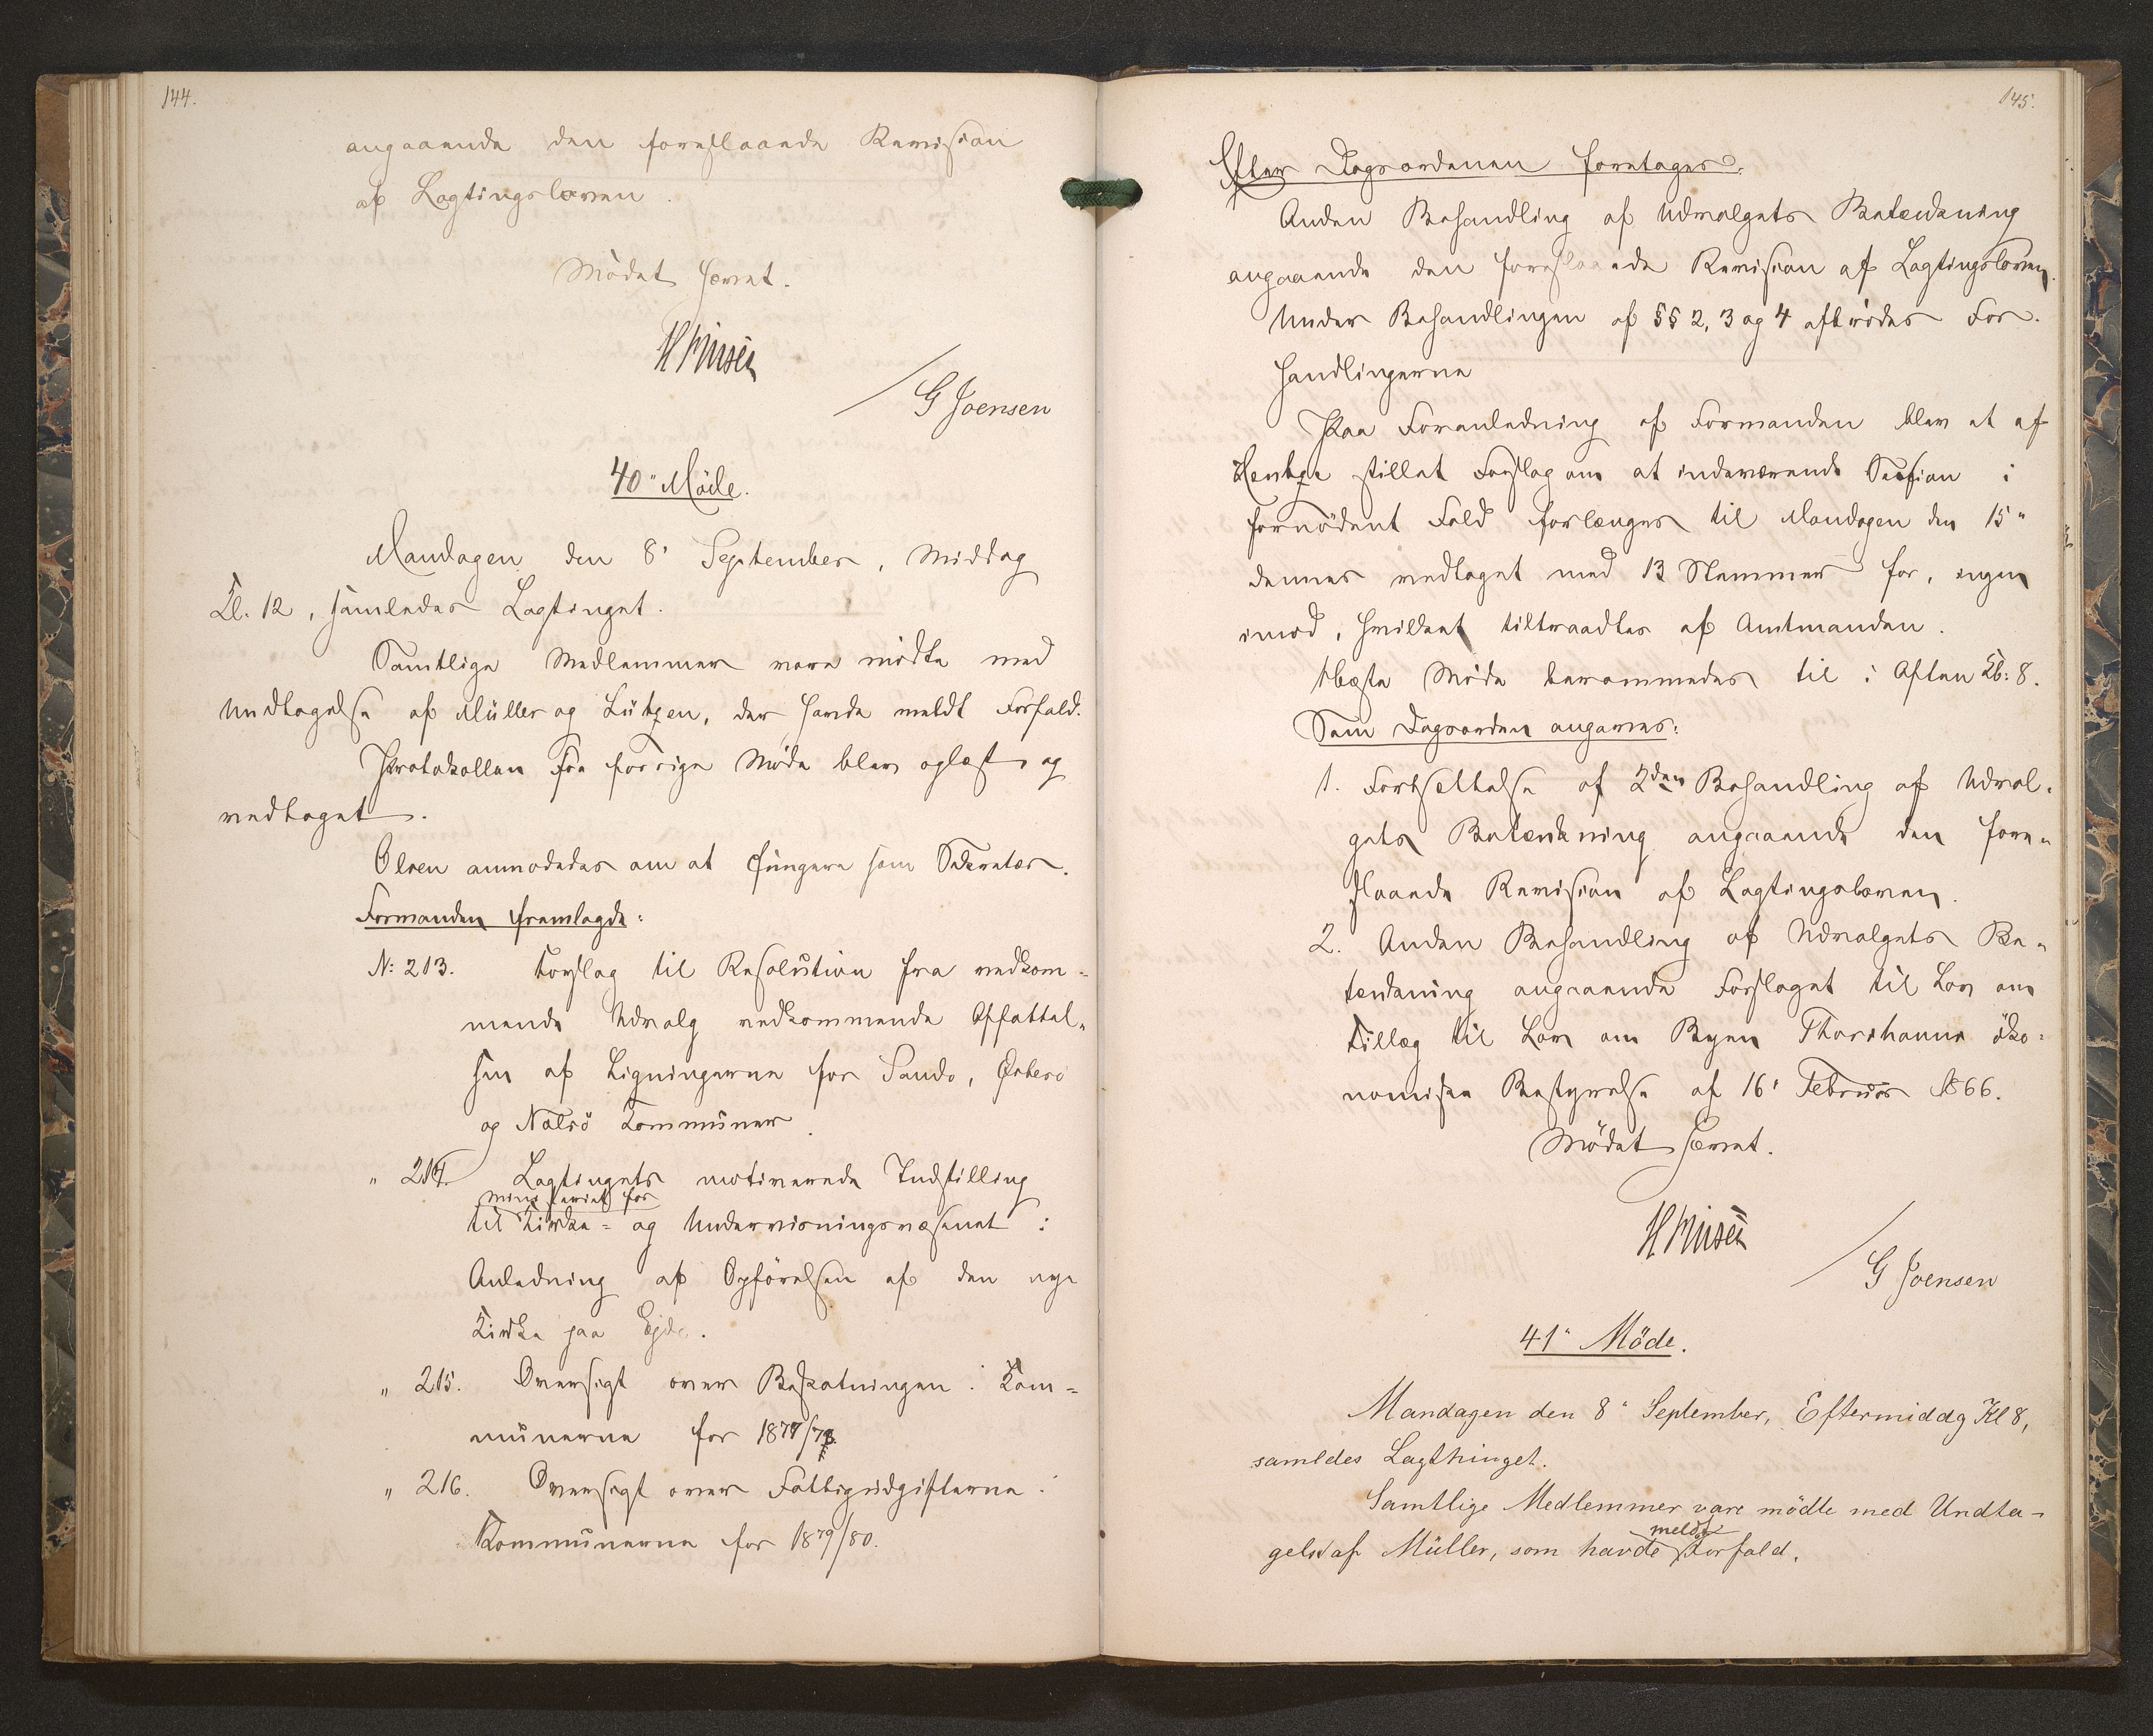 144.
angaaende den foreslaaede Revision
af Lagtingsloven.
Mödet hævet.
G Joensen
40" Möde.
Mandagen den 8' September, Middag
Kl. 12, samledes Lagtinget.
Samtlige Medlemmer vare mödte med
Undtagelse af Müller og Lützen, der havde meldt Forfald.
Protokollen fra forrige Möde blev oplæst og
vedtaget.
Olsen anmodedes om at fungere som Sekretær.
Formanden fremlagde:
N: 213. Forslag til Resolution fra vedkom=
mende Udvalg vedkommende Affattel„
sen af Ligningerne for Sandö, Österö
og Nolsö Kommuner.
„ 214. Lagtingets motiverede Indstilling
ministeriet for
til Kirke= og Undervisningsvæsenet i
Anledning af Opförelsen af den nye
Kirke paa Ejde.
„ 215. Oversigt over Beskatningen i Kom=
munerne for 1877/78
„ 216. Oversigt over Fattigudgifterne i
Kommunerne for 1879/80.
145.
Efter Dagsordenen foretoges:
Anden Behandling af Udvalgets Betænkning
angaaende den foreslaaede Revision af Lagtingsloven.
Under Behandlingen af §§ 2, 3 og 4 afbrödes For-
handlingerne
Paa Foranledning af Formanden blev et af
Hentze stillet Forslag om at indeværende Session i
fornödent Fald forlænges til Mandagen den 15"
dennes vedtaget med 13 Stemmer for, ingen
imod, hvilket tiltraadtes af Amtmanden.
Næste Möde berammedes til i Aften Kl: 8.
Som Dagsorden angaves:
1. Fortsættelse af 2den Behandling af Udval„
gets Betænkning angaaende den fore„
slaaede Revision af Lagtingsloven.
2. Anden Behandling af Udvalgets Be„
tænkning angaaende Forslaget til Lov om
Tillæg til Lov om Byen Thorshavns öko=
nomiske Bestyrelse af 16' Februar 1866.
Mödet hævet.
G Joensen
41" Möde.
Mandagen den 8" September, Eftermiddg Kl 8,
samledes Lagthinget.
Samtlige Medlemmer vare mödte med Undta-
meldt
gelse af Müller, som havde Forfald.